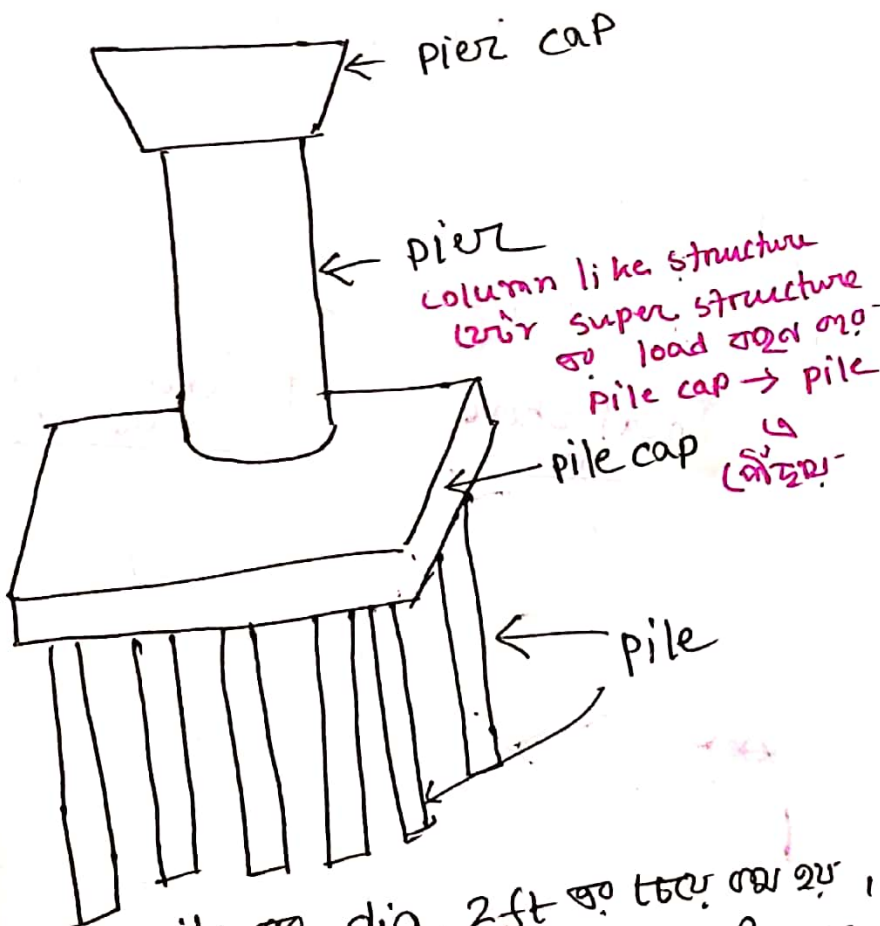 pier cap
pier
column like structure
যেটা super structure
এর load বহন করে
pile cap → pile
এ
পৌঁছায়
pile cap
pile
dia 2ft এর চেয়ে কম হয়,